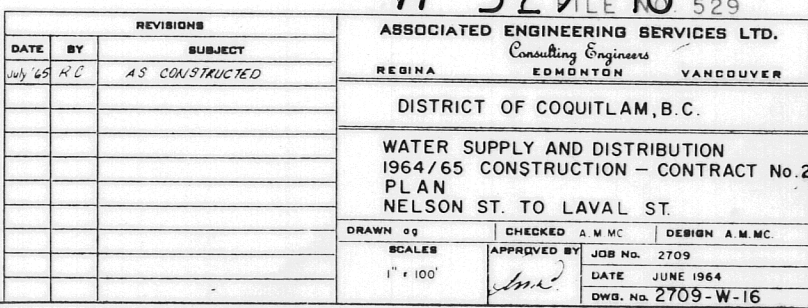 FILE NO. 529
REVISIONS
DATE BY SUBJECT
July '65 RC AS CONSTRUCTED
ASSOCIATED ENGINEERING SERVICES LTD.
Consulting Engineers
REGINA EDMONTON VANCOUVER
DISTRICT OF COQUITLAM, B.C.
WATER SUPPLY AND DISTRIBUTION
1964/65 CONSTRUCTION – CONTRACT No. 2
PLAN
NELSON ST. TO LAVAL ST.
DRAWN ag CHECKED A.M MC. DESIGN A.M.MC.
SCALES
1" = 100'
APPROVED BY
JOB No. 2709
DATE JUNE 1964
DWG. No. 2709-W-16